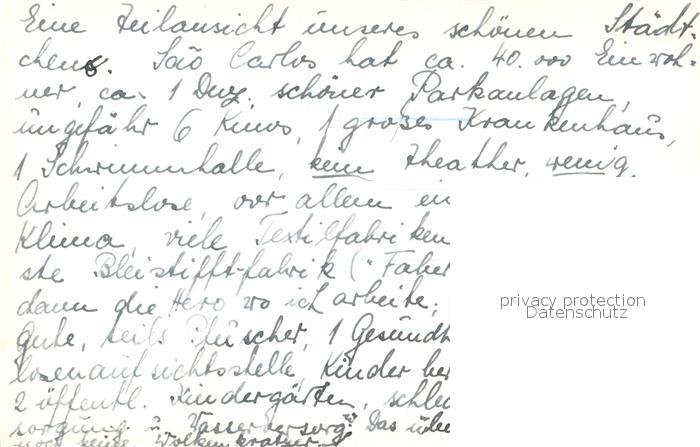 Eine Teilansicht unseres schönen Städt-
chens. São Carlos hat ca. 40.000 Einwoh-
ner, ca. 1 Duz. schöner Parkanlagen,
ungefähr 6 Kinos, 1 großes Krankenhaus,
1 Schwimmhalle, kein Theather, wenig
Arbeitslose, vor allem ein
Klima, viele Textilfabriken
ste Bleistifft-fabrik ("Faber
dann die Hero wo ich arbeite;
Gute, teils Pfuscher, 1 Gesundh
losenaufsichtsstelle, Kinder be
2 öffentl. Kindergärten, schlec
sorgung u. Wasserversorg. Das übe
noch keine Wolkenkratzer
privacy protection
Datenschutz